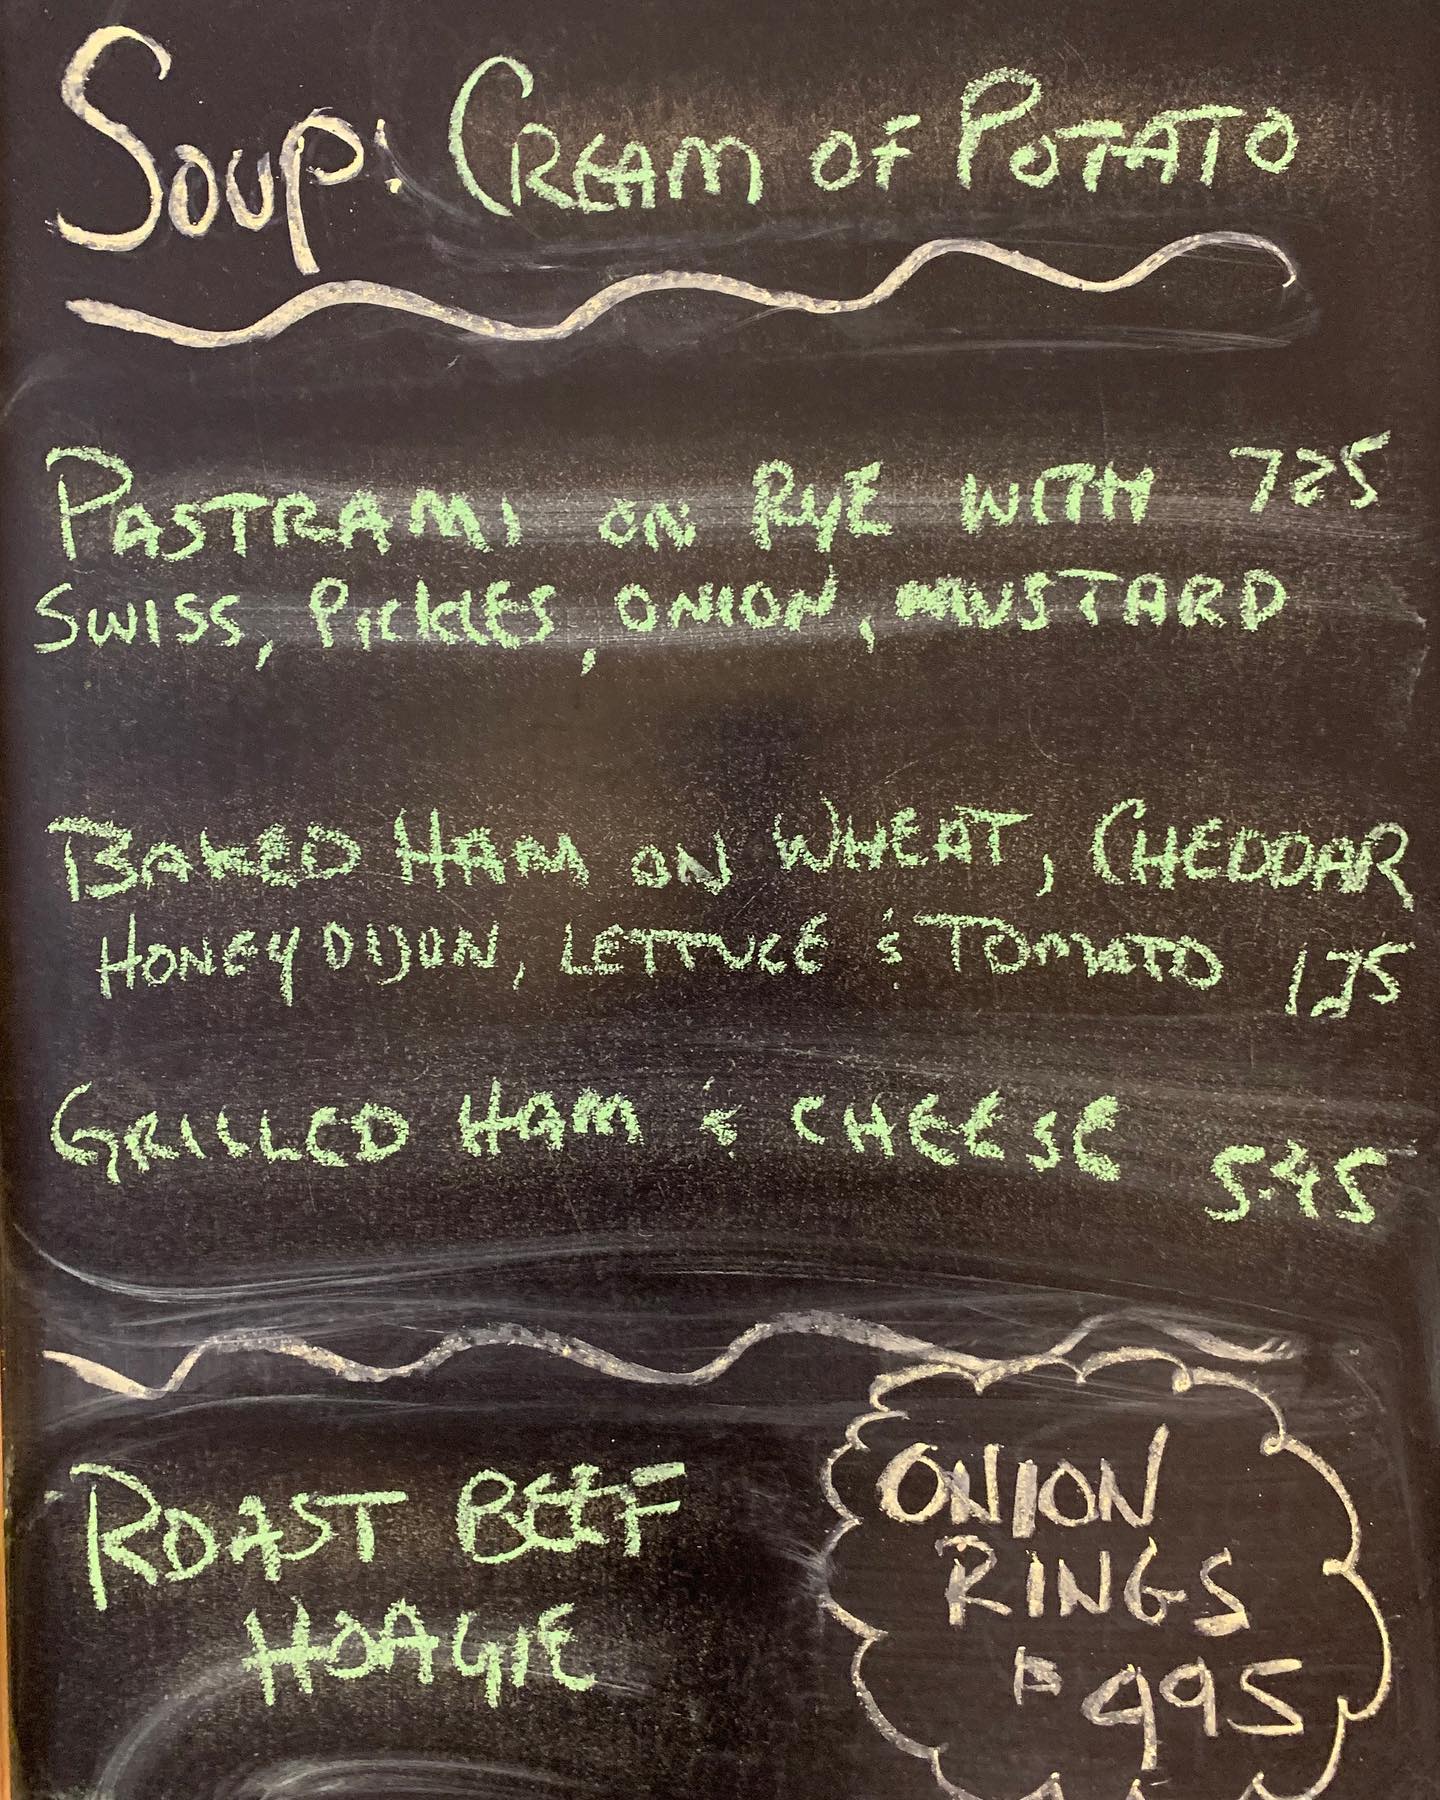 Soup: CREAM OF POTATO
PASTRAMI ON RYE WITH 725
SWISS, PICKLES, ONION, MUSTARD
BAKED HAM ON WHEAT, CHEDDAR
HONEY DIJON, LETTUCE & TOMATO 725
GRILLED HAM & CHEESE
5.45
ROAST BEEF
HOAGIE
ONION
RINGS
$495